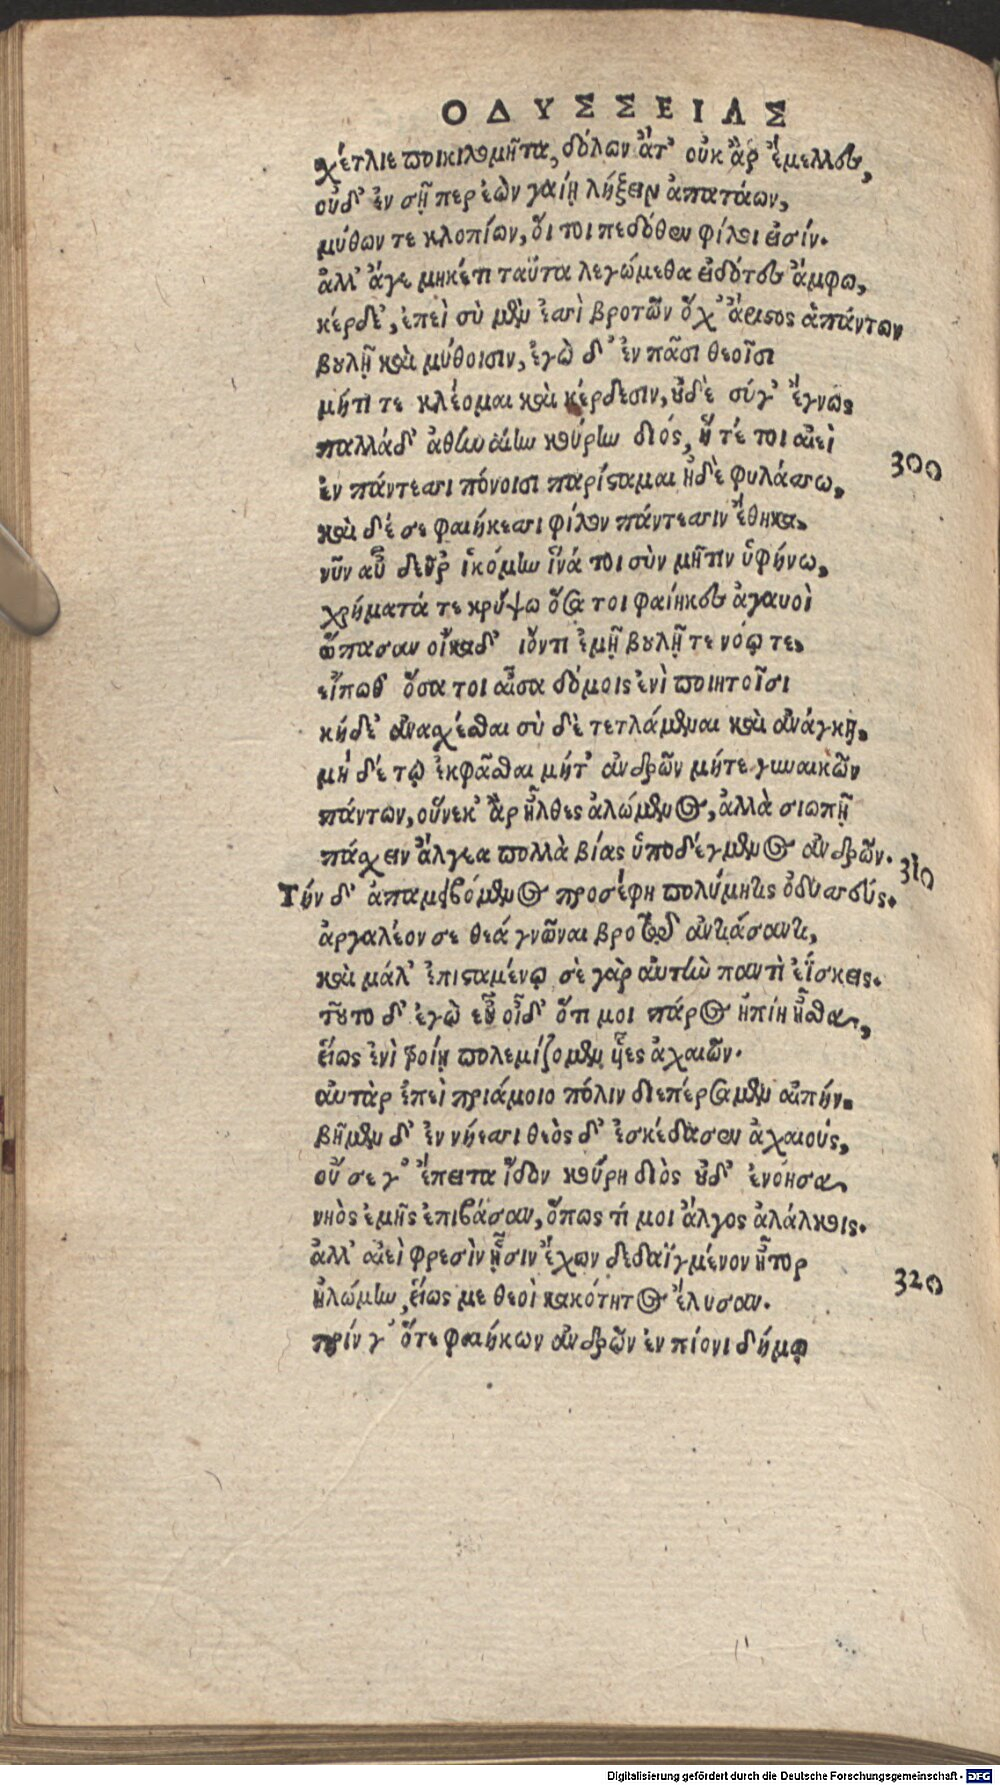 ΟΔΥΣΣΕΙΑΣ
σχέτλιε ποικιλομῆτα, δόλων ἆτ' οὐκ ἂρ ἔμελλες,
οὐδ' ἐν σῇ περ ἐὼν γαίῃ λήξειν ἀπατάων,
μύθων τε κλοπίων, ὅι τοι πεδόθεν φίλοι εἰσίν.
ἀλλ' ἄγε μηκέτι ταῦτα λεγώμεθα εἰδότες ἄμφω,
κέρδε', ἐπεὶ σὺ μὲν ἐσσὶ βροτῶν ὄχ' ἄριστος ἁπάντων
βουλῇ καὶ μύθοισιν, ἐγὼ δ' ἐν πᾶσι θεοῖσι
μήτι τε κλέομαι καὶ κέρδεσιν, οὐδὲ σύγ' ἔγνως
παλλάδ' ἀθηναίην κούρην διός, ἥ τέ τοι αἰεὶ
300
ἐν πάντεσσι πόνοισι παρίσταμαι ἠδὲ φυλάσσω,
καὶ δέ σε φαιήκεσσι φίλον πάντεσσιν ἔθηκα.
νῦν αὖ δεῦρ' ἱκόμην ἵνά τοι σὺν μῆτιν ὑφήνω,
χρήματά τε κρύψω ὅσα τοι φαίηκες ἀγαυοὶ
ὤπασαν οἴκαδ' ἰόντι ἐμῇ βουλῇ τε νόῳ τε.
εἴπωθ' ὅσα τοι αἶσα δόμοις ἐνὶ ποιητοῖσι
κήδε' ἀνασχέσθαι σὺ δὲ τετλάμεναι καὶ ἀνάγκῃ.
μὴ δέ τῳ ἐκφᾶσθαι μήτ' ἀνδρῶν μήτε γυναικῶν
πάντων, οὕνεκ' ἂρ ἦλθες ἀλώμενος, ἀλλὰ σιωπῇ
πάσχειν ἄλγεα πολλὰ βίας ὑποδέγμενος ἀνδρῶν.
310
Τήν δ' ἀπαμειβόμενος προσέφη πολύμητις ὀδυσσεύς.
ἀργαλέον σε θεά γνῶναι βροτῷ ἀντιάσαντι,
καὶ μάλ' ἐπισταμένῳ σὲ γὰρ αὐτὼ παντὶ ἐΐσκεις.
τοῦτο δ' ἐγὼ εὖ οἶδ' ὅτι μοι πάρος ἠπίη ἦσθα,
εἵως ἐνὶ τροίῃ πολεμίζομεν υἷες ἀχαιῶν.
αὐτὰρ ἐπεὶ πριάμοιο πόλιν διεπέρσαμεν αἰπήν.
βῆμεν δ' ἐν νήεσσι θεὸς δ' ἐσκέδασεν ἀχαιούς,
οὔ σε γ' ἔπειτα ἴδον κούρη διὸς οὐδ' ἐνόησα
νηὸς ἐμῆς ἐπιβᾶσαν, ὅπως τί μοι ἄλγος ἀλάλκοις.
ἀλλ' αἰεὶ φρεσὶν ᾗσιν ἔχων δεδαϊγμένον ἦτορ
320
ἠλώμην, εἵως με θεοὶ κακότητος ἔλυσαν.
πρίν γ' ὅτε φαιήκων ἀνδρῶν ἐν πίονι δήμῳ
Digitalisierung gefördert durch die Deutsche Forschungsgemeinschaft - DFG